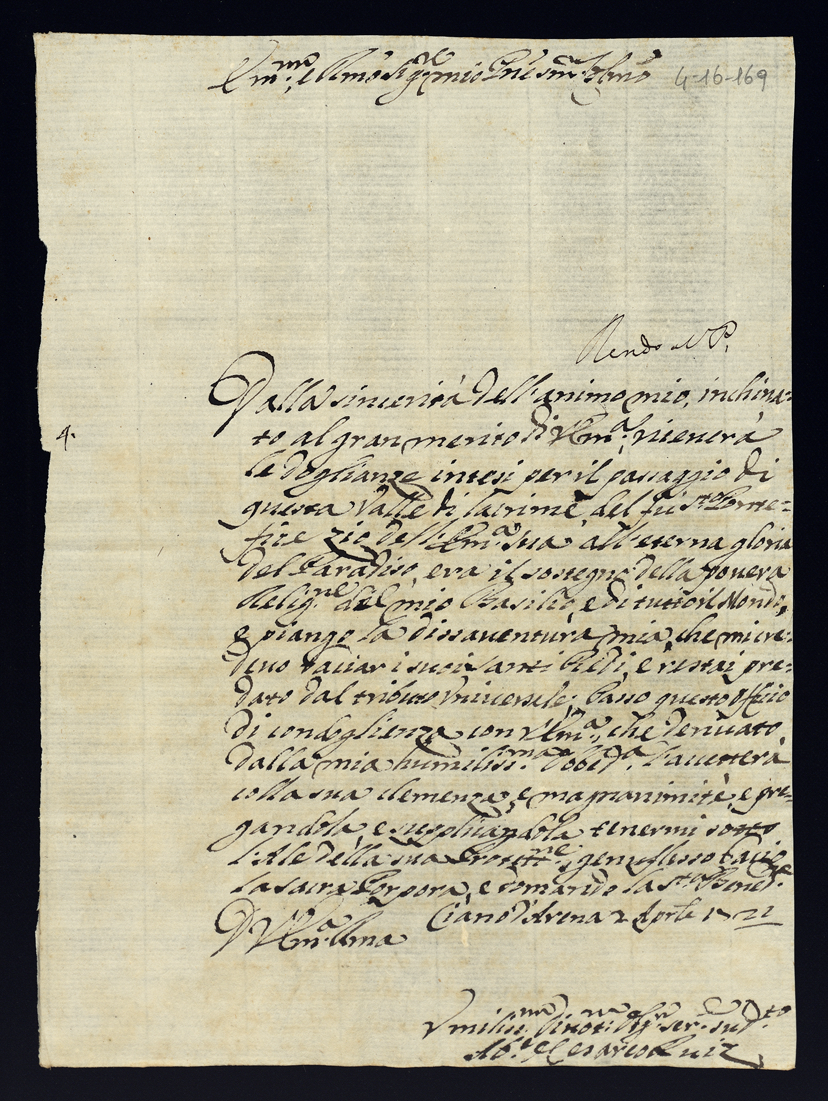 Em.mo e Rmo Sig.re mio Pne Sin.
4-16-169
Rendo a V. P.
Dalla sincerità dell'animo mio, inchina-
to al gran merito di V. Em.a, riceverà
4.
le doglianze intesi per il passaggio di
questa Valle di lacrime del fù s.to Ponte-
fice zio dell'Em.a sua all'eterna gloria
del Paradiso, era il sostegno della povera
Relig.ne del mio Basilio, e di tutto il Mondo,
e piango la dissaventura mia, che mi cre-
devo baciar i suoi santi Piedi, e restai pre-
dato dal tributo Universale; Passo questo officio
di condoglienza con V. Em.a, che derivato
dalla mia humiliss.ma l'accetterà
colla sua clemenza, e magnanimità, e pre-
gandola, e suppliandola tenermi sotto
l'Ale della sua Protett.ne, genuflesso bacio
la sacra Porpora, e domando la s.ta Bened.e
D V. Em.a Ciano d'Arena 2 Aprle 1721
Umiliss. Divot. ser.
Ab.e Cesareo Ruiz